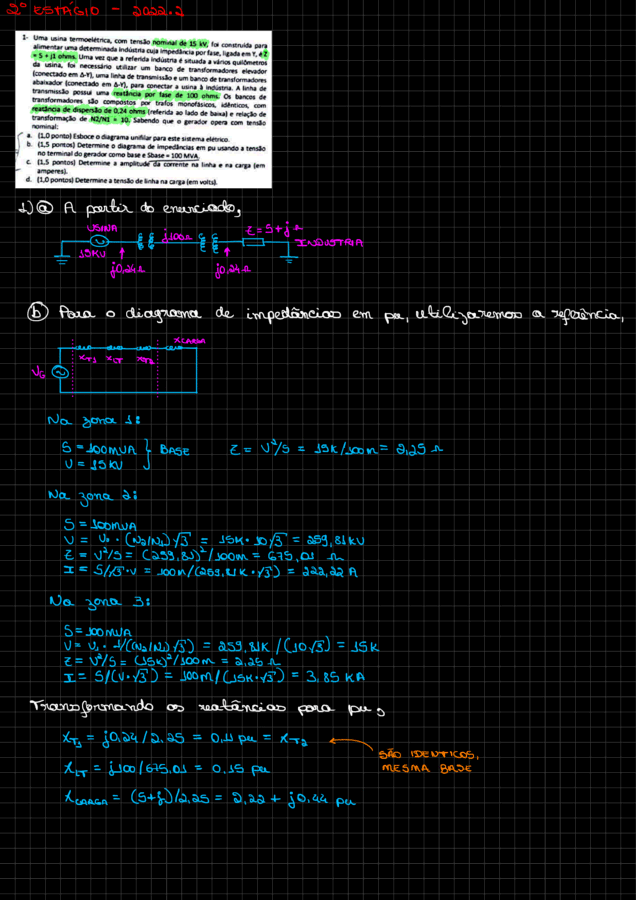 2º ESTÁGIO - 2022.2
1- Uma usina termoelétrica, com tensão nominal de 15 kV, foi construída para
alimentar uma determinada indústria cuja impedância por fase, ligada em Y, é Z
= 5 + j1 ohms. Uma vez que a referida indústria é situada a vários quilômetros
da usina, foi necessário utilizar um banco de transformadores elevador
(conectado em Δ-Y), uma linha de transmissão e um banco de transformadores
abaixador (conectado em Δ-Y), para conectar a usina à indústria. A linha de
transmissão possui uma reatância por fase de 100 ohms. Os bancos de
transformadores são compostos por trafos monofásicos, idênticos, com
reatância de dispersão de 0,24 ohms (referida ao lado de baixa) e relação de
transformação de N2/N1 = 10. Sabendo que o gerador opera com tensão
nominal:
a. (1,0 ponto) Esboce o diagrama unifilar para este sistema elétrico.
b. (1,5 pontos) Determine o diagrama de impedâncias em pu usando a tensão
no terminal do gerador como base e Sbase = 100 MVA.
c. (1,5 pontos) Determine a amplitude da corrente na linha e na carga (em
amperes).
d. (1,0 pontos) Determine a tensão de linha na carga (em volts).
1) a) A partir do enunciado,
USINA j100Ω Z = 5 + j
INDUSTRIA
15KV
j0,24Ω j0,24Ω
b) Para o diagrama de impedâncias em pu, utilizaremos a referência,
XCARGA
XT1 XLT XT2
VG
Na zona 1:
S = 100MVA } BASE Z = V²/S = 15K/100m = 2,25 Ω
V = 15KV
Na zona 2:
S = 100MVA
V = V1 · (N2/N1)√3 = 15K · 10√3 = 259,81KV
Z = V²/S = (259,81)²/100m = 675,01 Ω
I = S/√3·V = 100m/(259,81K·√3) = 222,22 A
Na zona 3:
S = 100MVA
V = V1 · 1/((N2/N1)√3) = 259,81K / (10√3) = 15K
Z = V²/S = (15K)²/100m = 2,25 Ω
I = S/(V·√3) = 100m/(15K·√3) = 3,85 KA
Transformando as reatâncias para pu,
XT1 = j0,24/2,25 = 0,11 pu = XT2
SÃO IDENTICOS,
MESMA BASE
XLT = j100/675,01 = 0,15 pu
XCARGA = (5+j)/2,25 = 2,22 + j0,44 pu